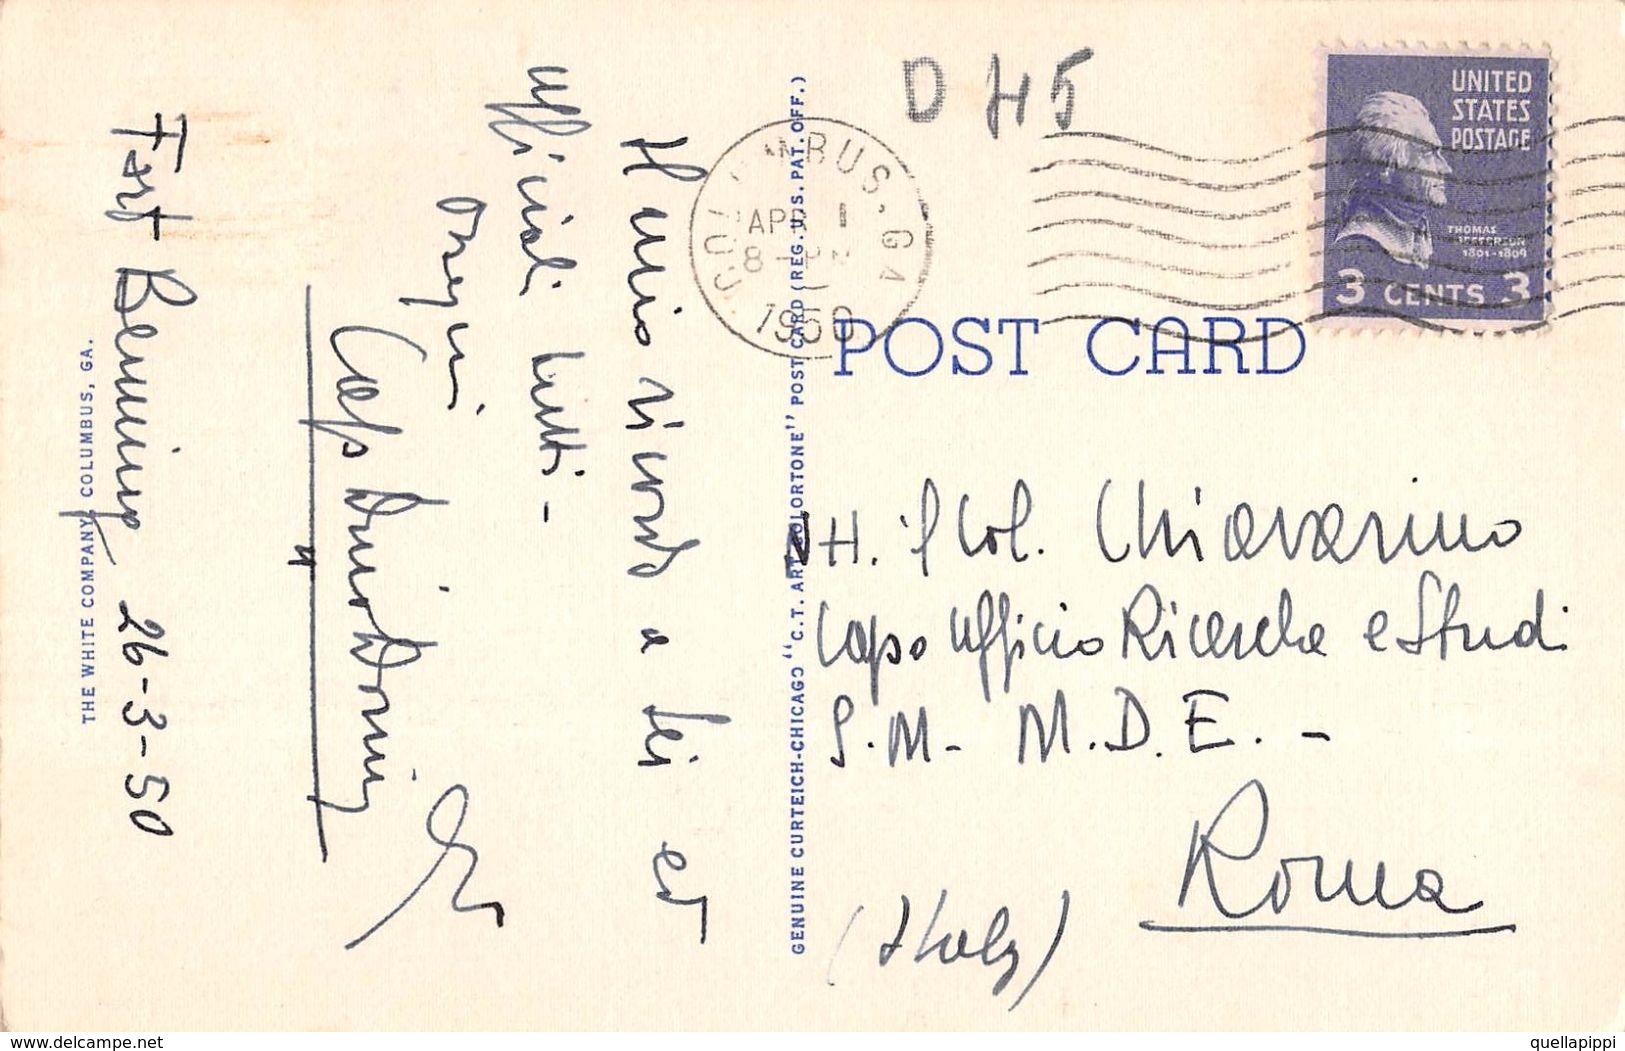 Fort Benning 26-3-50
Il mio ricordo a Lei ed
Ufficiali tutti -
Ossequi
Cap
THE WHITE COMPANY, COLUMBUS, GA.
GENUINE CURTEICH-CHICAGO "C.T. ART-COLORTONE" POST CARD (REG. U.S. PAT. OFF.)
D H5
COLUMBUS, GA
APR 1
8 - PM
1950
UNITED
STATES
POSTAGE
THOMAS
JEFFERSON
1801-1809
3 CENTS 3
POST CARD
il Col. Chiavarino
Capo Ufficio Ricerche e Studi
S.M. - M.D.E. -
Roma
(Italy)
delcampe.net
quellapippi